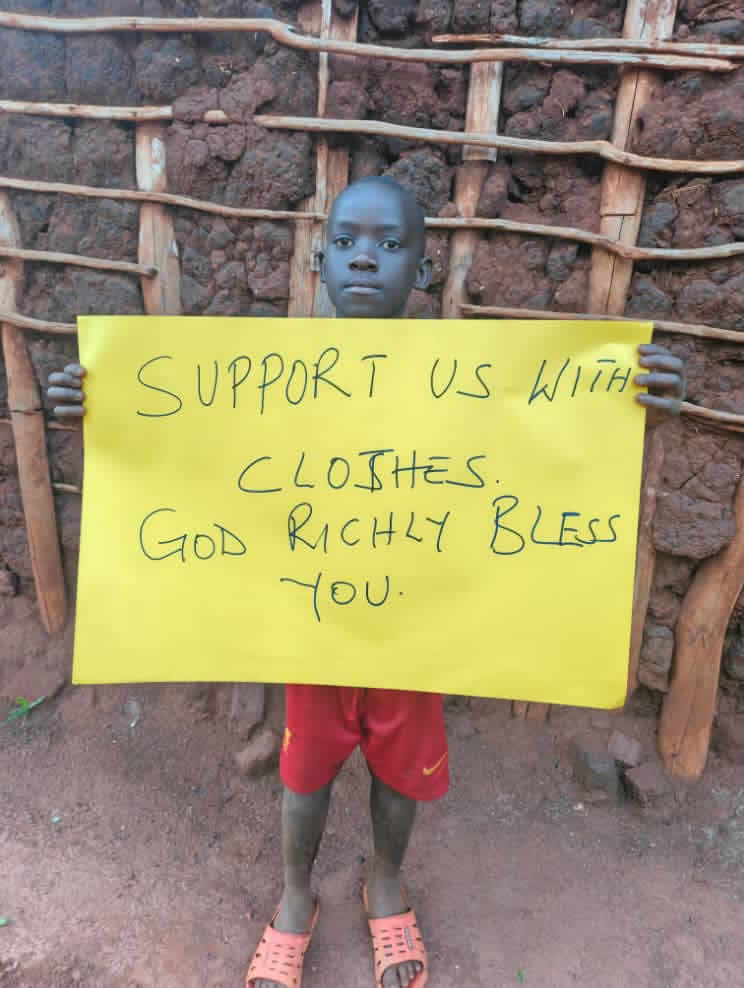 SUPPORT US WITH
CLOTHES.
GOD RICHLY BLESS
YOU.